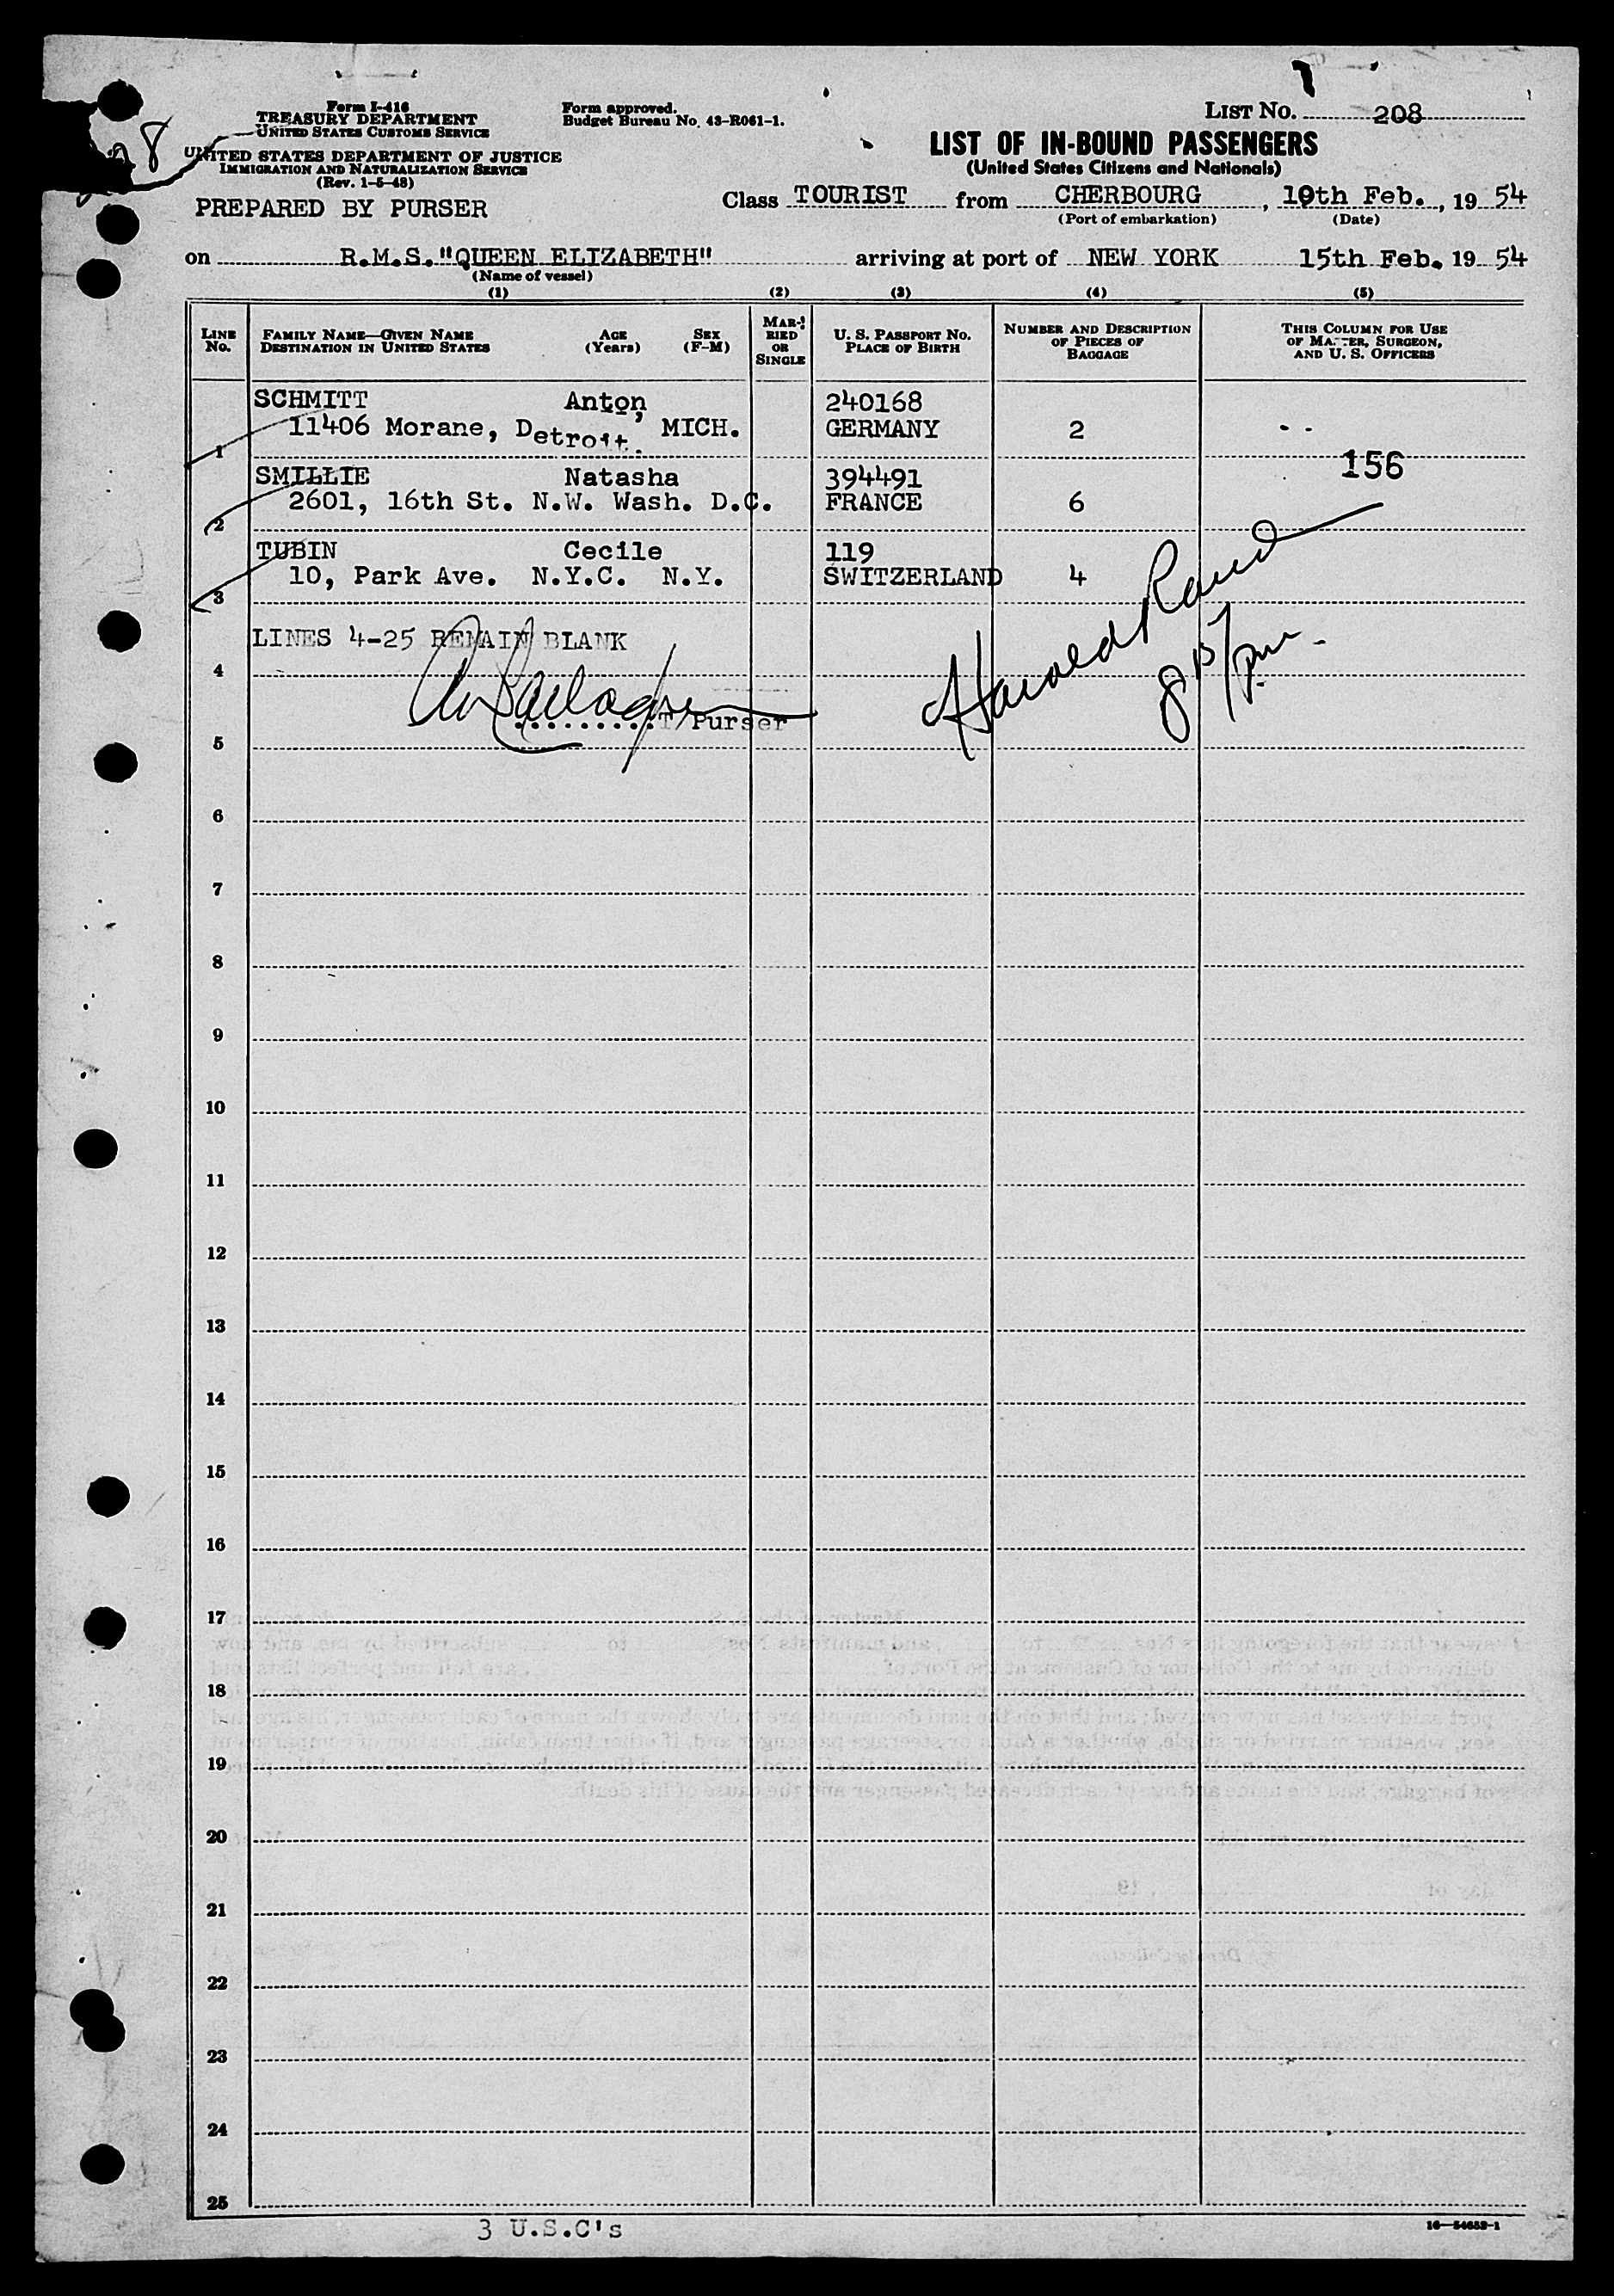 Form I-416
TREASURY DEPARTMENT
UNITED STATES CUSTOMS SERVICE
UNITED STATES DEPARTMENT OF JUSTICE
IMMIGRATION AND NATURALIZATION SERVICE
(Rev. 1-5-48)
PREPARED BY PURSER
Form approved.
Budget Bureau No. 43-R061-1.
LIST NO. 208
LIST OF IN-BOUND PASSENGERS
(United States Citizens and Nationals)
Class TOURIST from CHERBOURG, 10th Feb., 19 54
(Port of embarkation) (Date)
on R.M.S. "QUEEN ELIZABETH" arriving at port of NEW YORK 15th Feb. 19 54
(Name of vessel)
(1) (2) (3) (4) (5)
LINE No. FAMILY NAME—GIVEN NAME DESTINATION IN UNITED STATES AGE (Years) SEX (F-M) MARRIED OR SINGLE U. S. PASSPORT NO. PLACE OF BIRTH NUMBER AND DESCRIPTION OF PIECES OF BAGGAGE THIS COLUMN FOR USE OF MASTER, SURGEON, AND U. S. OFFICERS
SCHMITT Anton 240168
1 11406 Morane, Detroit, MICH. GERMANY 2
156
SMILLIE Natasha 394491
2 2601, 16th St. N.W. Wash. D.C. FRANCE 6
TUBIN Cecile 119
3 10, Park Ave. N.Y.C. N.Y. SWITZERLAND 4
LINES 4-25 REMAIN BLANK
4
T/Purser
Harold Rand
5
6
7
8
9
10
11
12
13
14
15
16
17
18
19
20
21
22
23
24
25
3 U.S.C's
16—54652-1